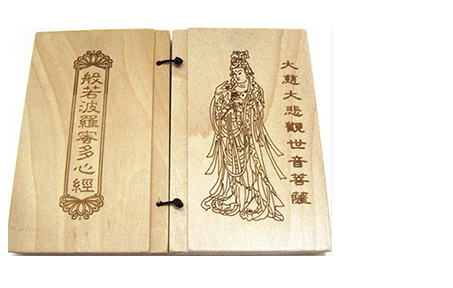 般若波羅蜜多心經
大慈大悲觀世音菩薩